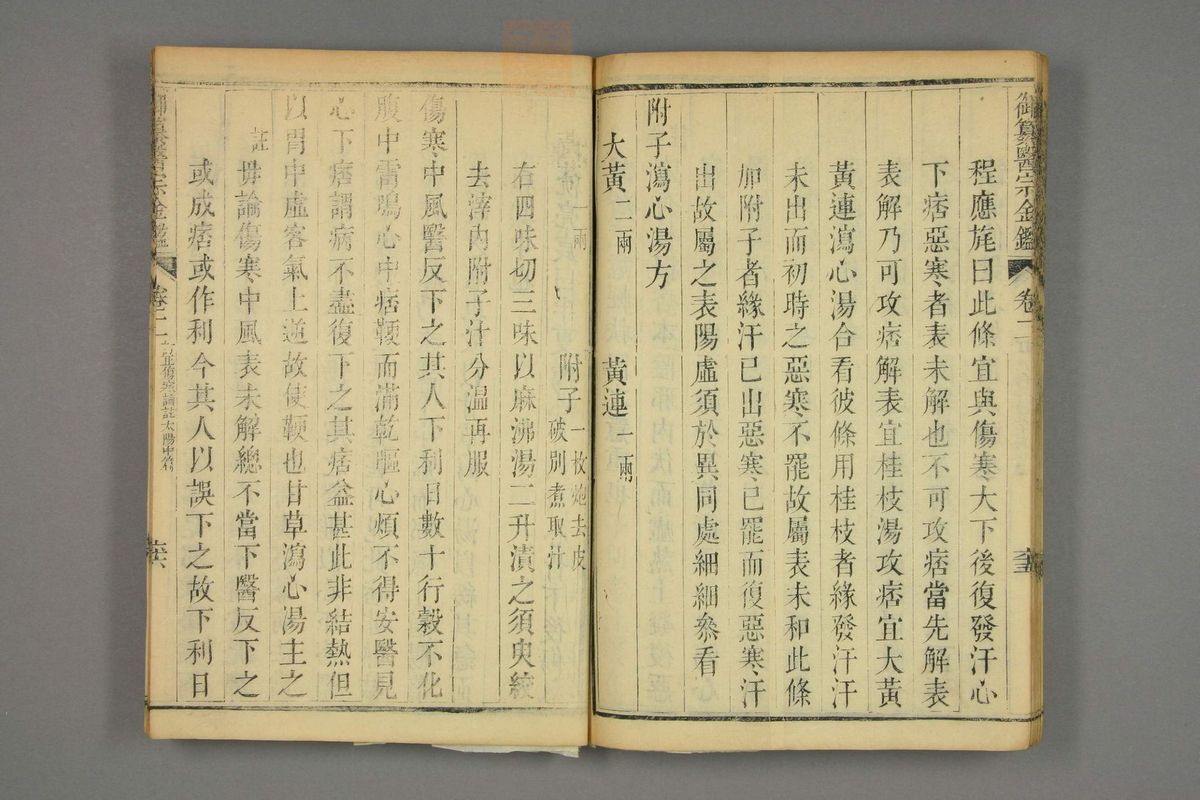 御纂醫宗金鑑 卷二
程應旄曰此條宜與傷寒大下後復發汗心
下痞惡寒者表未解也不可攻痞當先解表
表解乃可攻痞解表宜桂枝湯攻痞宜大黃
黃連瀉心湯合看彼條用桂枝者緣發汗汗
未出而初時之惡寒不罷故屬表未和此條
加附子者緣汗已出惡寒已罷而復惡寒汗
出故屬之表陽虛須於異同處細細叅看
附子瀉心湯方
大黃二兩 黃連一兩
一兩 附子一枚炮去皮破別煮取汁
右四味切三味以麻沸湯二升漬之須臾絞
去滓內附子汁分温再服
傷寒中風醫反下之其人下利日數十行穀不化
腹中雷鳴心中痞鞕而滿乾嘔心煩不得安醫見
心下痞謂病不盡復下之其痞益甚此非結熱但
以胃中虛客氣上逆故使鞕也甘草瀉心湯主之
註毋論傷寒中風表未解總不當下醫反下之
或成痞或作利今其人以誤下之故下利日
御纂醫宗金鑑 卷二